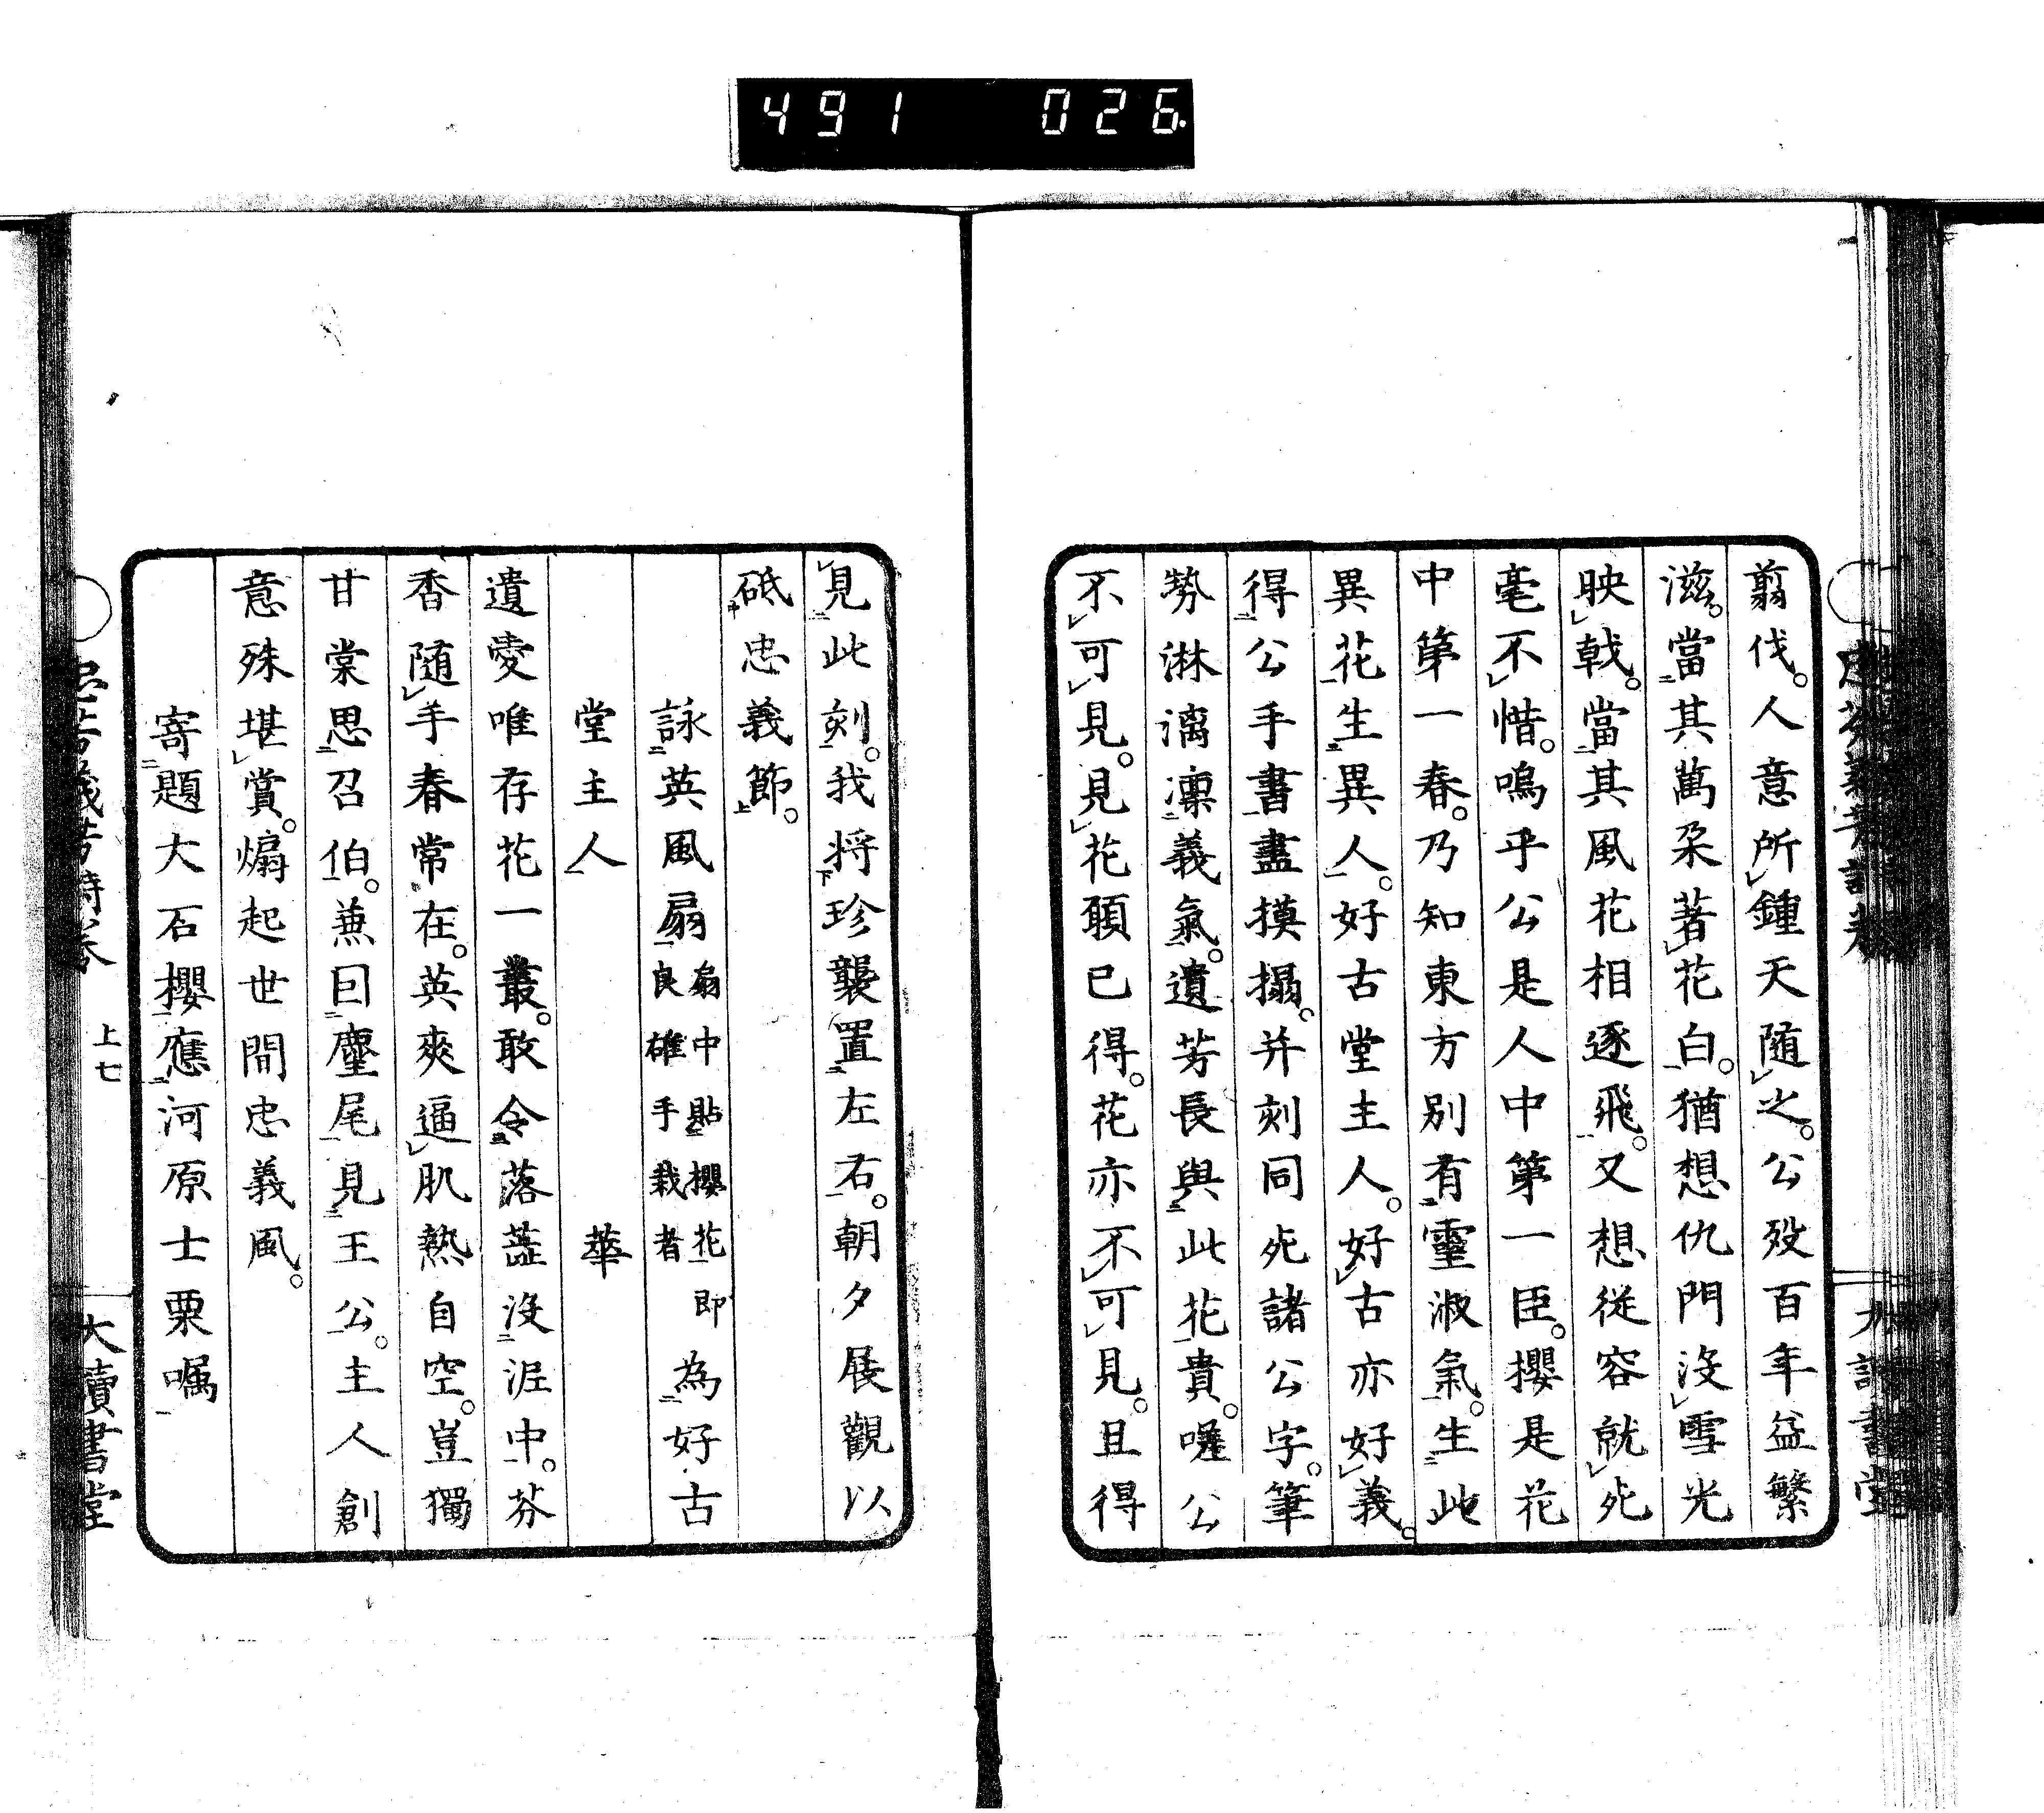 491 026
翦伐。人意所鍾天随之。公歿百年益繁
滋。當其萬朶著花白。猶想仇門沒雪光
映戟。當其風花相逐飛。又想從容就死
毫不惜。嗚乎公是人中第一臣。櫻是花
中第一春。乃知東方別有靈淑氣。生此
異花生異人。好古堂主人。好古亦好義。
得公手書盡摸搨。并刻同死諸公字。筆
勢淋漓凛義氣。遺芳長與此花貴。嗟公
不可見。見花願已得。花亦不可見。且得
見此刻。我将珍襲置左右。朝夕展觀以
砥忠義節。
詠英風扇扇中貼櫻花即良雄手栽者為好古
堂主人 華
遺愛唯存花一叢。敢令落蕋沒涯中。芬
香随手春常在。英爽逼肌熱自空。豈獨
甘棠思召伯。兼囙麈尾見王公。主人創
意殊堪賞。煽起世間忠義風。
寄題大石櫻應河原士栗嘱
忠芬義芳詩卷 上七 大讀書堂